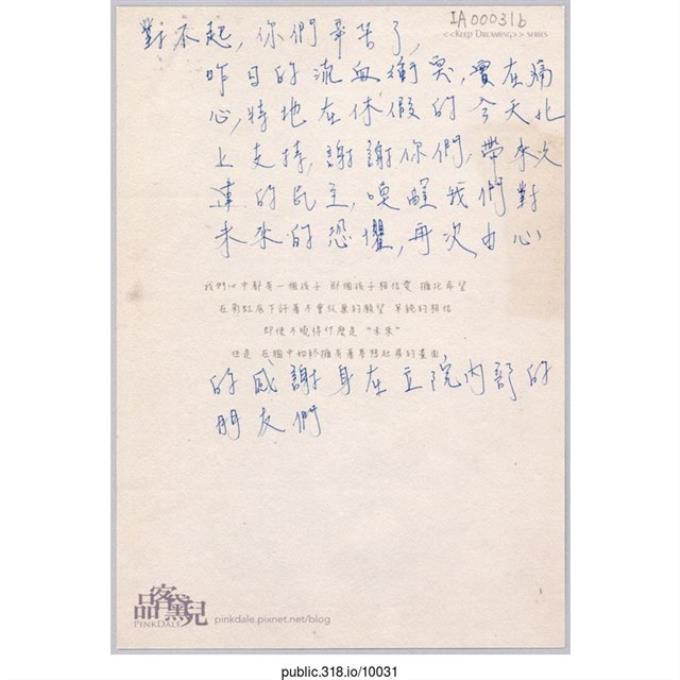 IA00031b
<<KEEP DREAMING>> SERIES
對不起，你們辛苦了，
昨日的流血衝突，實在痛
心，特地在休假的今天北
上支持，謝謝你們，帶來久
違的民主，喚醒我們對
未來的恐懼，再次由心
我們心中都有一個孩子 那個孩子相信愛 擁抱希望
在彩虹底下許著不會放棄的願望 單純的相信
即便不曉得什麼是 "未來"
但是 在腦中始終擁有著夢想起飛的畫面
的感謝身在立院內部的
朋友們
品客黛兒
PINKDALE
pinkdale.pixnet.net/blog
public.318.io/10031